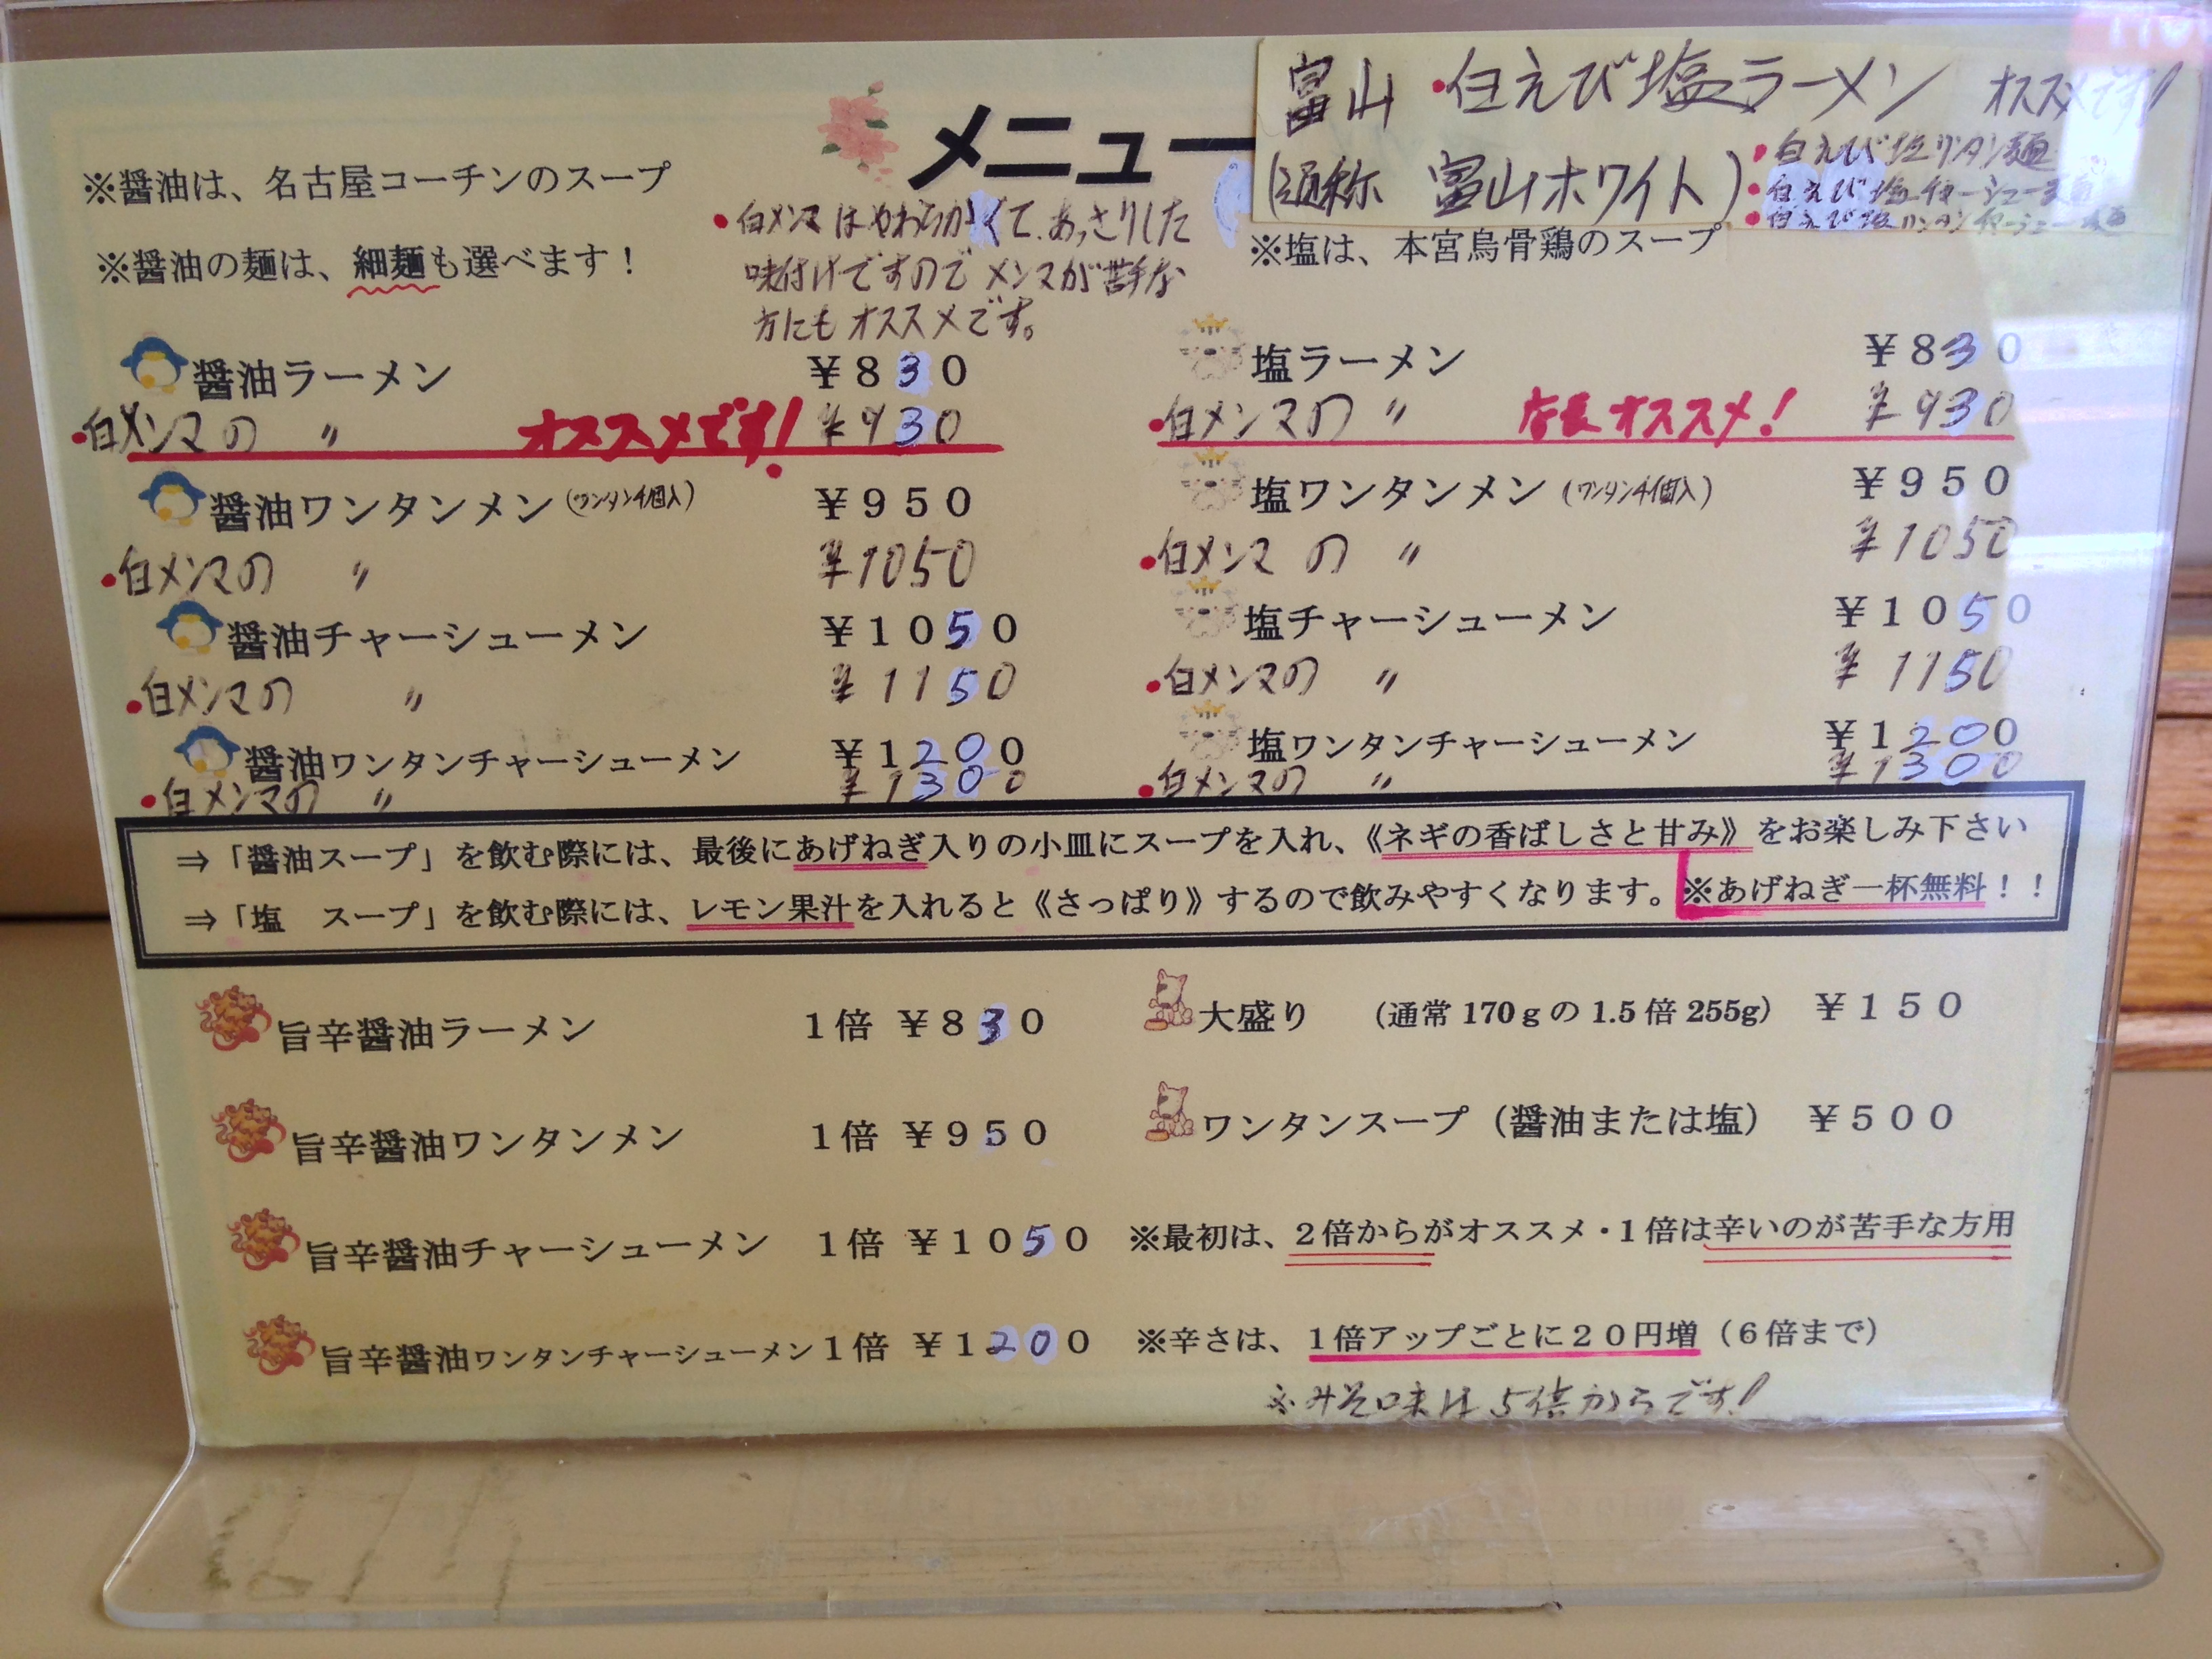 メニュー
富山 ・白えび塩ラーメン オススメです!!
(通称 富山ホワイト)
・白えび塩ワンタン麺
・白えび塩チャーシュー麺
・白えび塩ワンタンチャーシュー麺
※醤油は、名古屋コーチンのスープ
※醤油の麺は、細麺も選べます!
・白メンマはやわらかくて、あっさりした
味付けですのでメンマが苦手な
方にもオススメです。
※塩は、本宮烏骨鶏のスープ
醤油ラーメン ¥830
・白メンマの 〃 オススメです! ¥930
醤油ワンタンメン(ワンタン4個入) ¥950
・白メンマの 〃 ¥1050
醤油チャーシューメン ¥1050
・白メンマの 〃 ¥1150
醤油ワンタンチャーシューメン ¥1200
・白メンマの 〃 ¥1300
塩ラーメン ¥830
・白メンマの 〃 店長オススメ! ¥930
塩ワンタンメン(ワンタン4個入) ¥950
・白メンマの 〃 ¥1050
塩チャーシューメン ¥1050
・白メンマの 〃 ¥1150
塩ワンタンチャーシューメン ¥1200
・白メンマの 〃 ¥1300
⇒「醤油スープ」を飲む際には、最後にあげねぎ入りの小皿にスープを入れ、《ネギの香ばしさと甘み》をお楽しみ下さい
⇒「塩 スープ」を飲む際には、レモン果汁を入れると《さっぱり》するので飲みやすくなります。※あげねぎ一杯無料!!
旨辛醤油ラーメン 1倍 ¥830
旨辛醤油ワンタンメン 1倍 ¥950
旨辛醤油チャーシューメン 1倍 ¥1050
旨辛醤油ワンタンチャーシューメン 1倍 ¥1200
大盛り (通常170gの1.5倍255g) ¥150
ワンタンスープ(醤油または塩) ¥500
※最初は、2倍からがオススメ・1倍は辛いのが苦手な方用
※辛さは、1倍アップごとに20円増(6倍まで)
※みそ味は5倍からです!